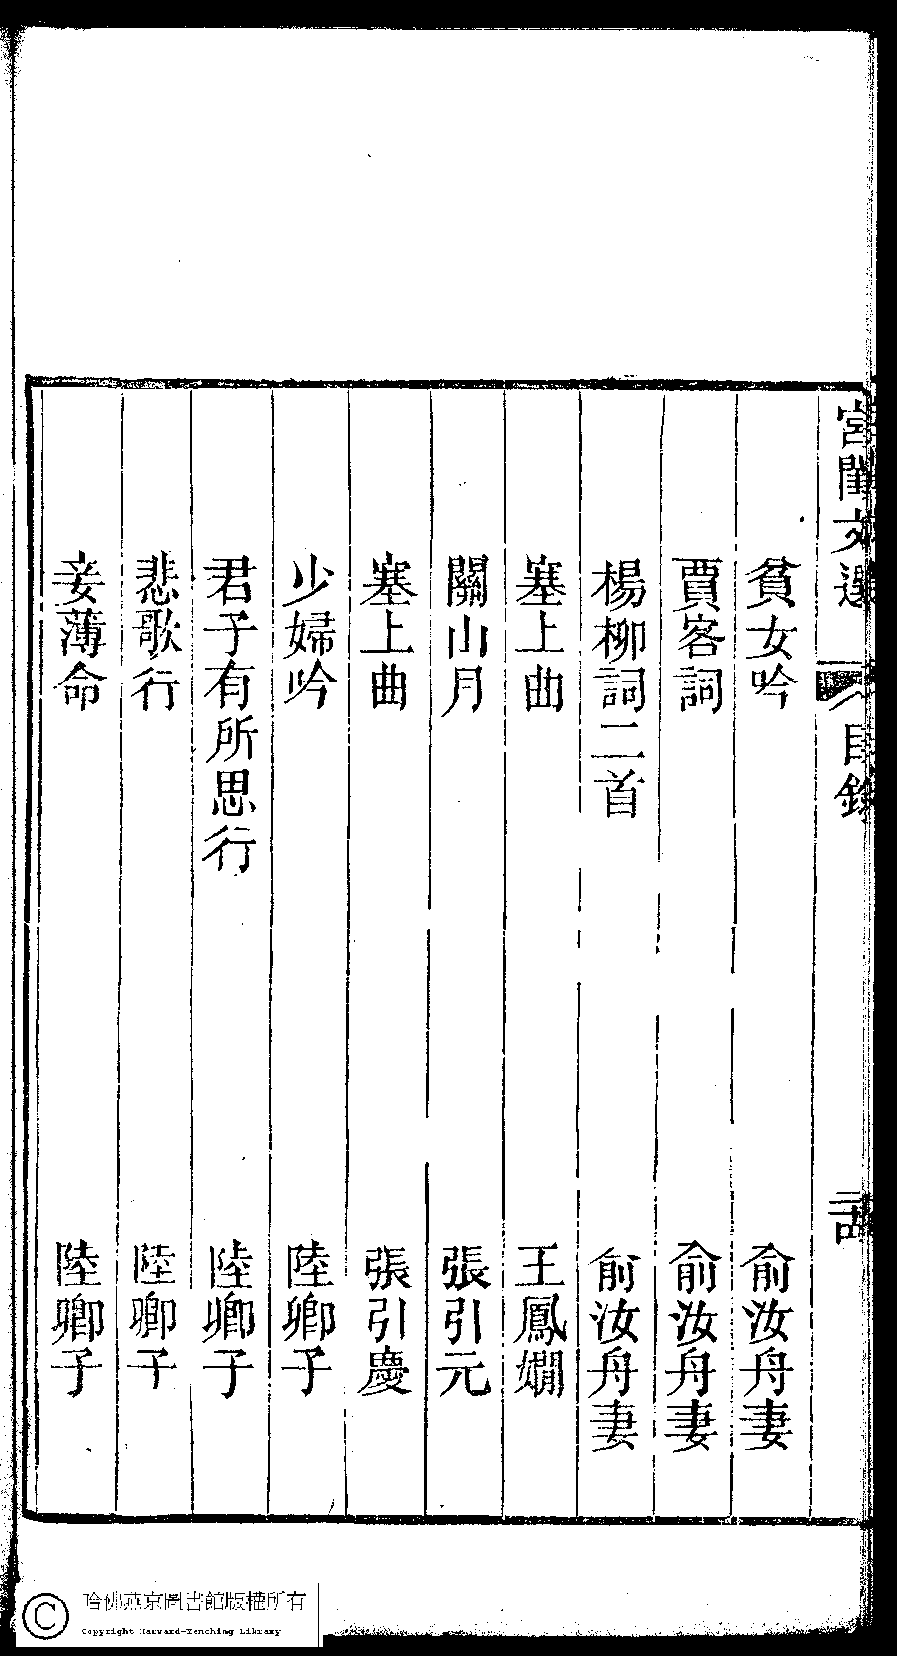 宮閨文選
目錄
貧女吟 俞汝舟妻
賈客詞 俞汝舟妻
楊柳詞二首 俞汝舟妻
塞上曲 王鳳嫻
關山月 張引元
塞上曲 張引慶
少婦吟 陸卿子
君子有所思行 陸卿子
悲歌行 陸卿子
妾薄命 陸卿子
哈佛燕京圖書館版權所有
Copyright Harvard-Yenching Library